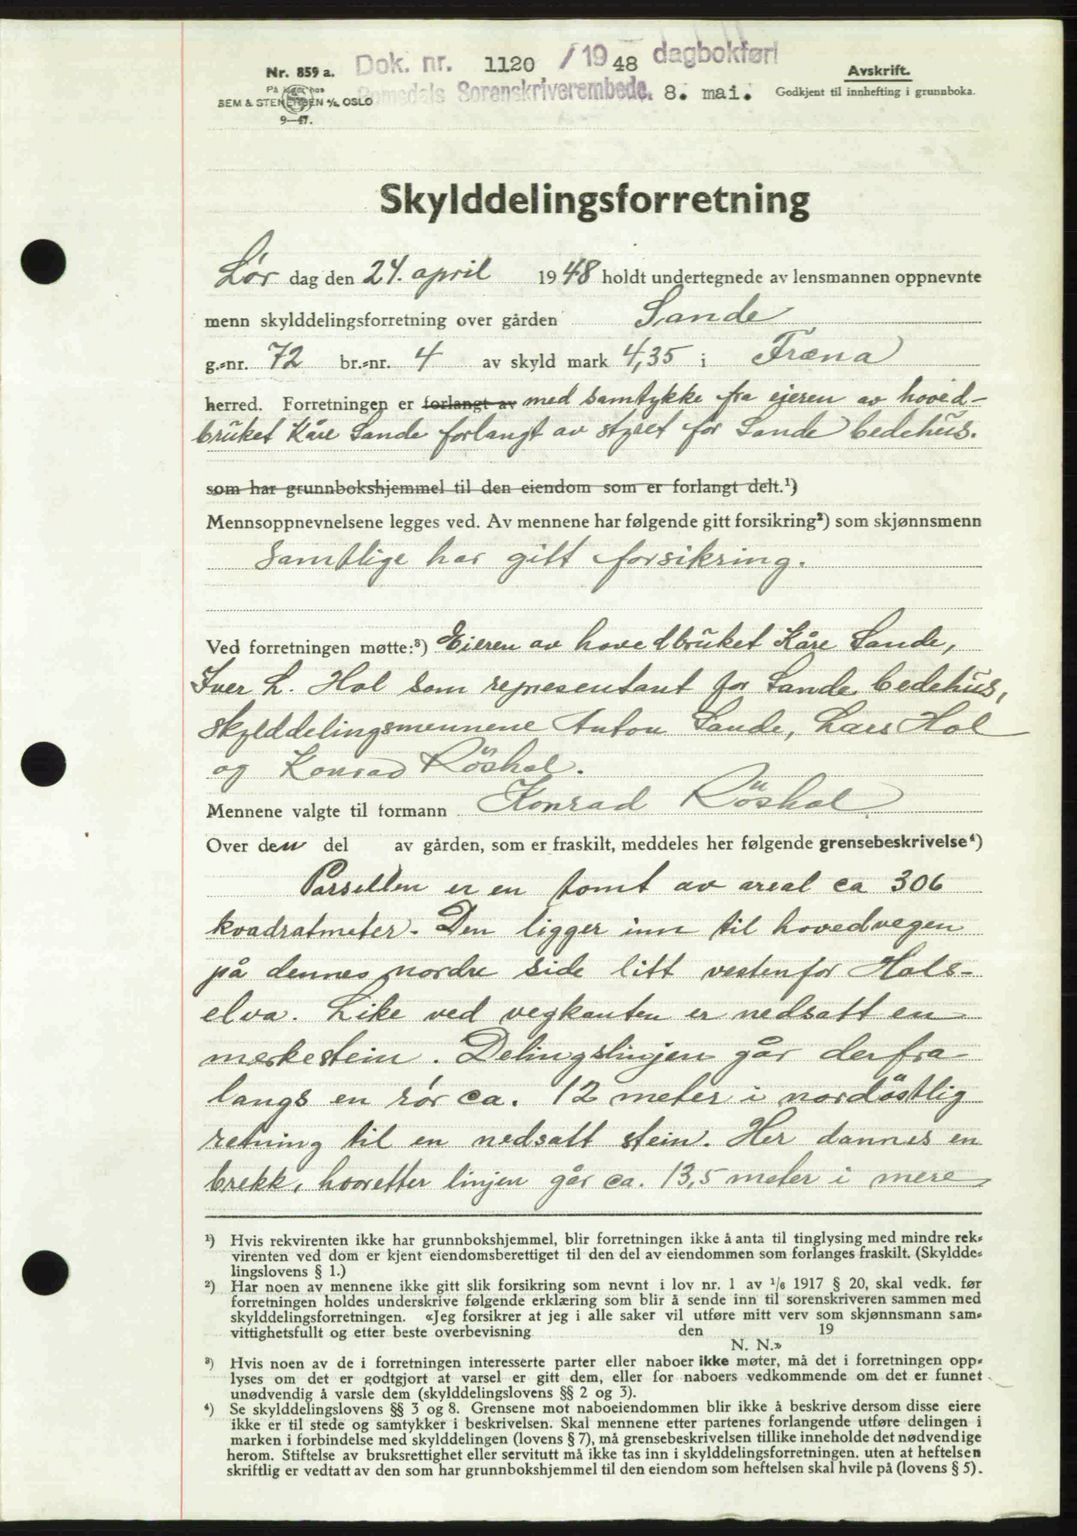 Dok. nr. 1120 / 19 48 dagbokført
Romsdals Sorenskriverembede. 8. mai.
Nr. 859 a.
På lager hos
SEM & STENERSEN A/S, OSLO
9—47.
Avskrift.
Godkjent til innhefting i grunnboka.
Skylddelingsforretning
Lør dag den 24. april 1948 holdt undertegnede av lensmannen oppnevnte
menn skylddelingsforretning over gården Sande
g.-nr. 72 br.-nr. 4 av skyld mark 4,35 i Fræna
herred. Forretningen er forlangt av med samtykke fra ejeren av hoved-
bruket Kåre Sande forlangt av styret for Sande bedehus.
som har grunnbokshjemmel til den eiendom som er forlangt delt.¹)
Mennsoppnevnelsene legges ved. Av mennene har følgende gitt forsikring²) som skjønnsmenn
Samtlige har gitt forsikring.
Ved forretningen møtte:³) Eieren av hovedbruket Kåre Sande,
Iver L. Hol som representant for Sande bedehus,
skylddelingsmennene Anton Sande, Lars Hol
og Konrad Röshol.
Mennene valgte til formann Konrad Röshol
Over den del av gården, som er fraskilt, meddeles her følgende grensebeskrivelse⁴)
Parsellen er en tomt av areal ca 306
kvadratmeter. Den ligger inn til hovedvegen
på dennes nordre side litt vestenfor Hols-
elva. Like ved vegkanten er nedsatt en
merkestein. Delingslinjen går derfra
langs en rør ca. 12 meter i nordöstlig
retning til en nedsatt stein. Her dannes en
brekk, hvoretter linjen går ca. 13,5 meter i mere
¹) Hvis rekvirenten ikke har grunnbokshjemmel, blir forretningen ikke å anta til tinglysing med mindre rek-
virenten ved dom er kjent eiendomsberettiget til den del av eiendommen som forlanges fraskilt. (Skyldde-
lingslovens § 1.)
²) Har noen av mennene ikke gitt slik forsikring som nevnt i lov nr. 1 av ¹/₆ 1917 § 20, skal vedk. før
forretningen holdes underskrive følgende erklæring som blir å sende inn til sorenskriveren sammen med
skylddelingsforretningen. «Jeg forsikrer at jeg i alle saker vil utføre mitt verv som skjønnsmann sam-
vittighetsfullt og etter beste overbevisning den 19
N. N.»
³) Hvis noen av de i forretningen interesserte parter eller naboer ikke møter, må det i forretningen opp-
lyses om det er godtgjort at varsel er gitt dem, eller for naboers vedkommende om det er funnet
unødvendig å varsle dem (skylddelingslovens §§ 2 og 3).
⁴) Se skylddelingslovens §§ 3 og 8. Grensene mot naboeiendommen blir ikke å beskrive dersom disse eiere
ikke er til stede og samtykker i beskrivelsen. Skal mennene etter partenes forlangende utføre delingen i
marken i forbindelse med skylddelingen (lovens § 7), må grensebeskrivelsen tillike inneholde det nødvendige
herom. Stiftelse av bruksrettighet eller servitutt må ikke tas inn i skylddelingsforretningen, uten at heftelsen
skriftlig er vedtatt av den som har grunnbokshjemmel til den eiendom som heftelsen skal hvile på (lovens § 5).